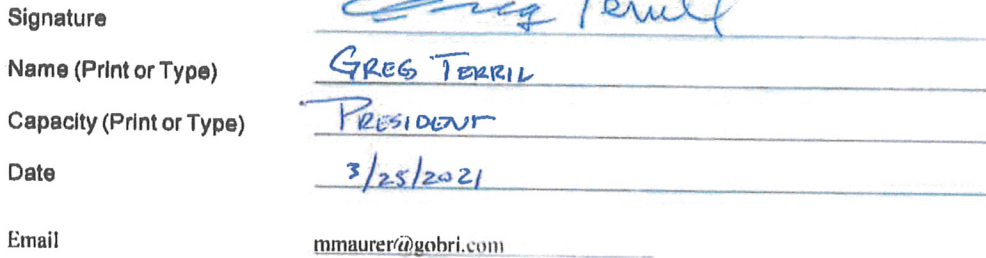 Signature Greg Terrill
Name (Print or Type) GREG TERRIL
Capacity (Print or Type) PRESIDENT
Date 3/25/2021
Email mmaurer@gobri.com